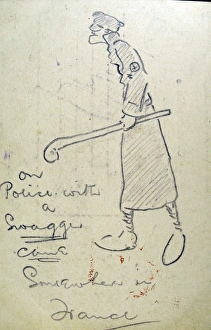 on
Police with
a
Swagger
cane
Somewhere in
France